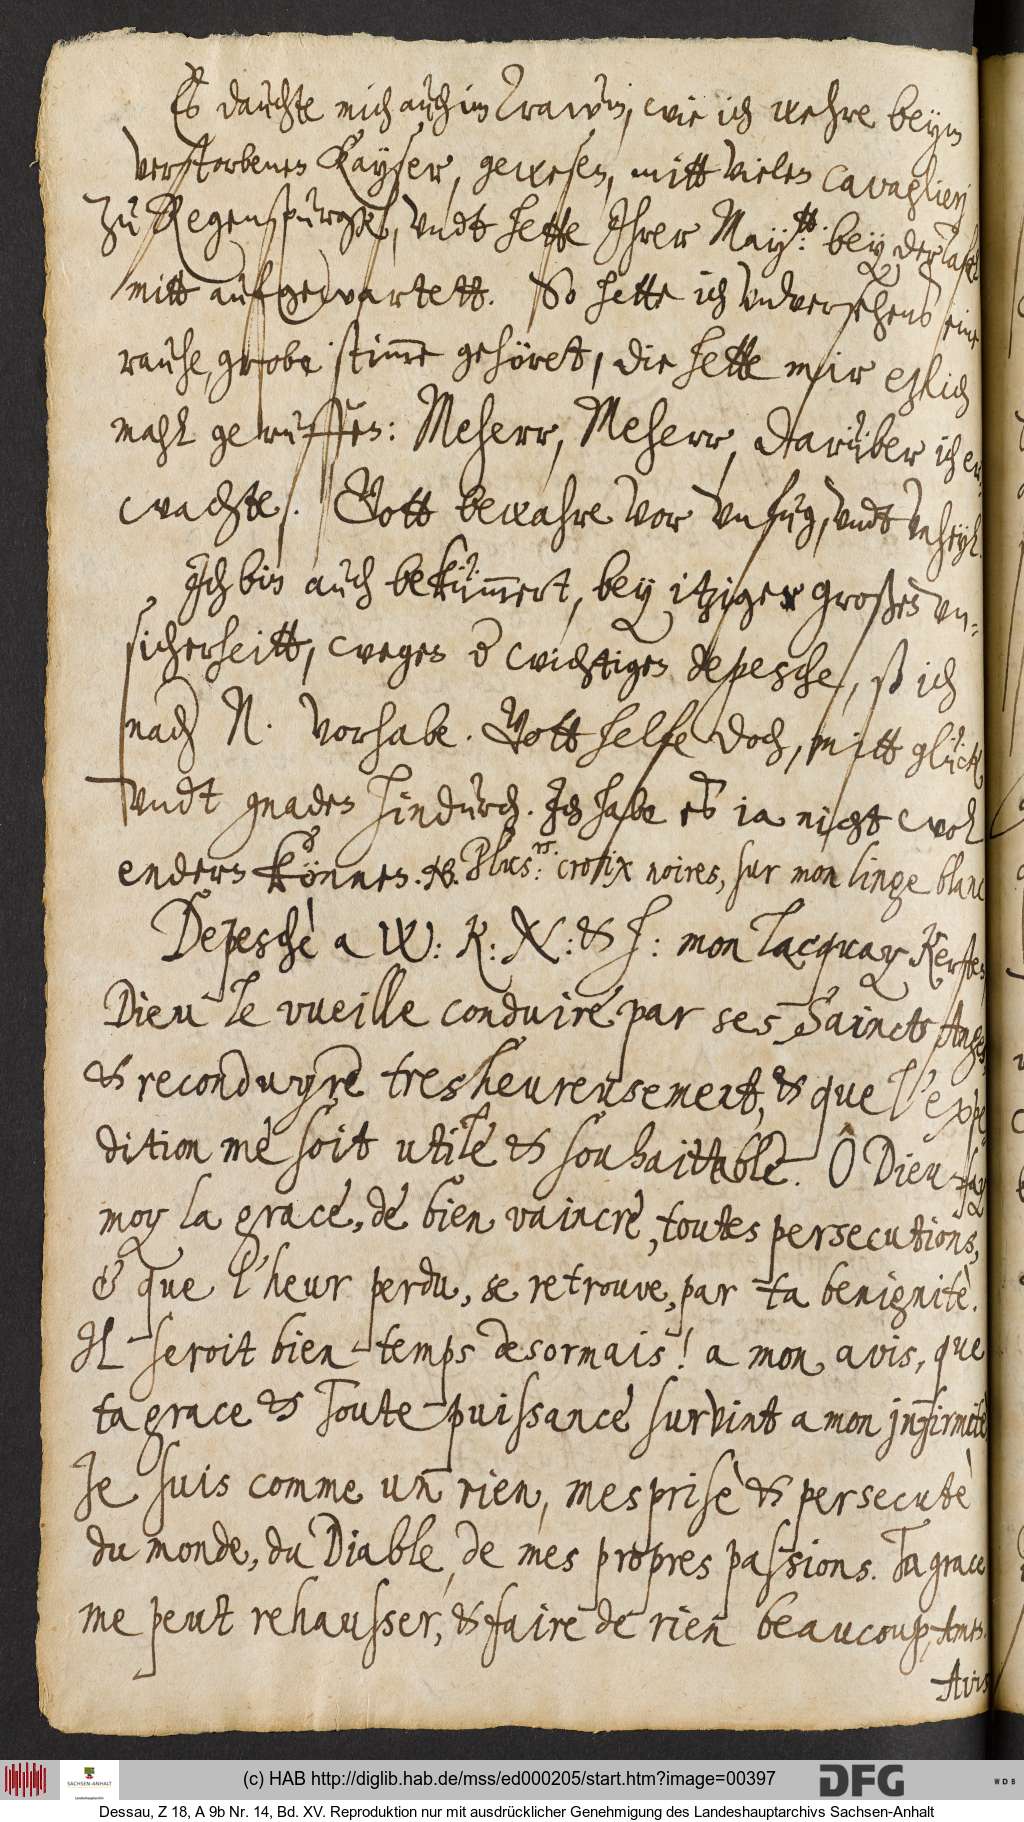 Es dauchte mich auch im Trawm, wie ich wehre beym
verstorbenen Kayser, gewesen, mitt vielen Cavaglierj
zu Regenspurgk, undt hette Ihrer May:tt bey der Tafel
mitt aufgewartett. So hette ich undversehens eine
rauhe, grobe stimme gehöret, die hette mir ezlich
mahl geruffen: Meherr, Meherr, darüber ich er-
wachte. Gott bewahre vor unfug, undt unheyl.
Ich bin auch bekümmert, bey itziger großer un-
sicherheitt, wegen der wichtigen depesche, so ich
nach N. vorhabe. Gott helfe doch, mitt glück
undt gnaden hindurch. Ich habe es ia nicht wol
enders können. NB. Plus:rs crosix noires, sur mon linge blanc
Depeschè a W: K: N: & H: mon lacquay Kersten
Dieu le vueille conduire par ses Saincts Anges,
& reconduyre tresheureusement, & que l'expe
dition me soit utile & souhaittable. Ô Dieu fay
moy la grace, de bien vaincre, toutes persecutions,
& que l'heur perdu, se retrouve, par ta benignitè.
Il seroit bien temps desormais! a mon avis, que
ta grace & Toute puissance survint a mon jnfirmitè
Je suis comme un rien, mesprisè & persecutè
du monde, du Diable, de mes propres passions. Ta grace
me peut rehausser, & faire de rien beaucoup, Amen.
Avis
(c) HAB http://diglib.hab.de/mss/ed000205/start.htm?image=00397
SACHSEN-ANHALT
DFG
WDB
Dessau, Z 18, A 9b Nr. 14, Bd. XV. Reproduktion nur mit ausdrücklicher Genehmigung des Landeshauptarchivs Sachsen-Anhalt